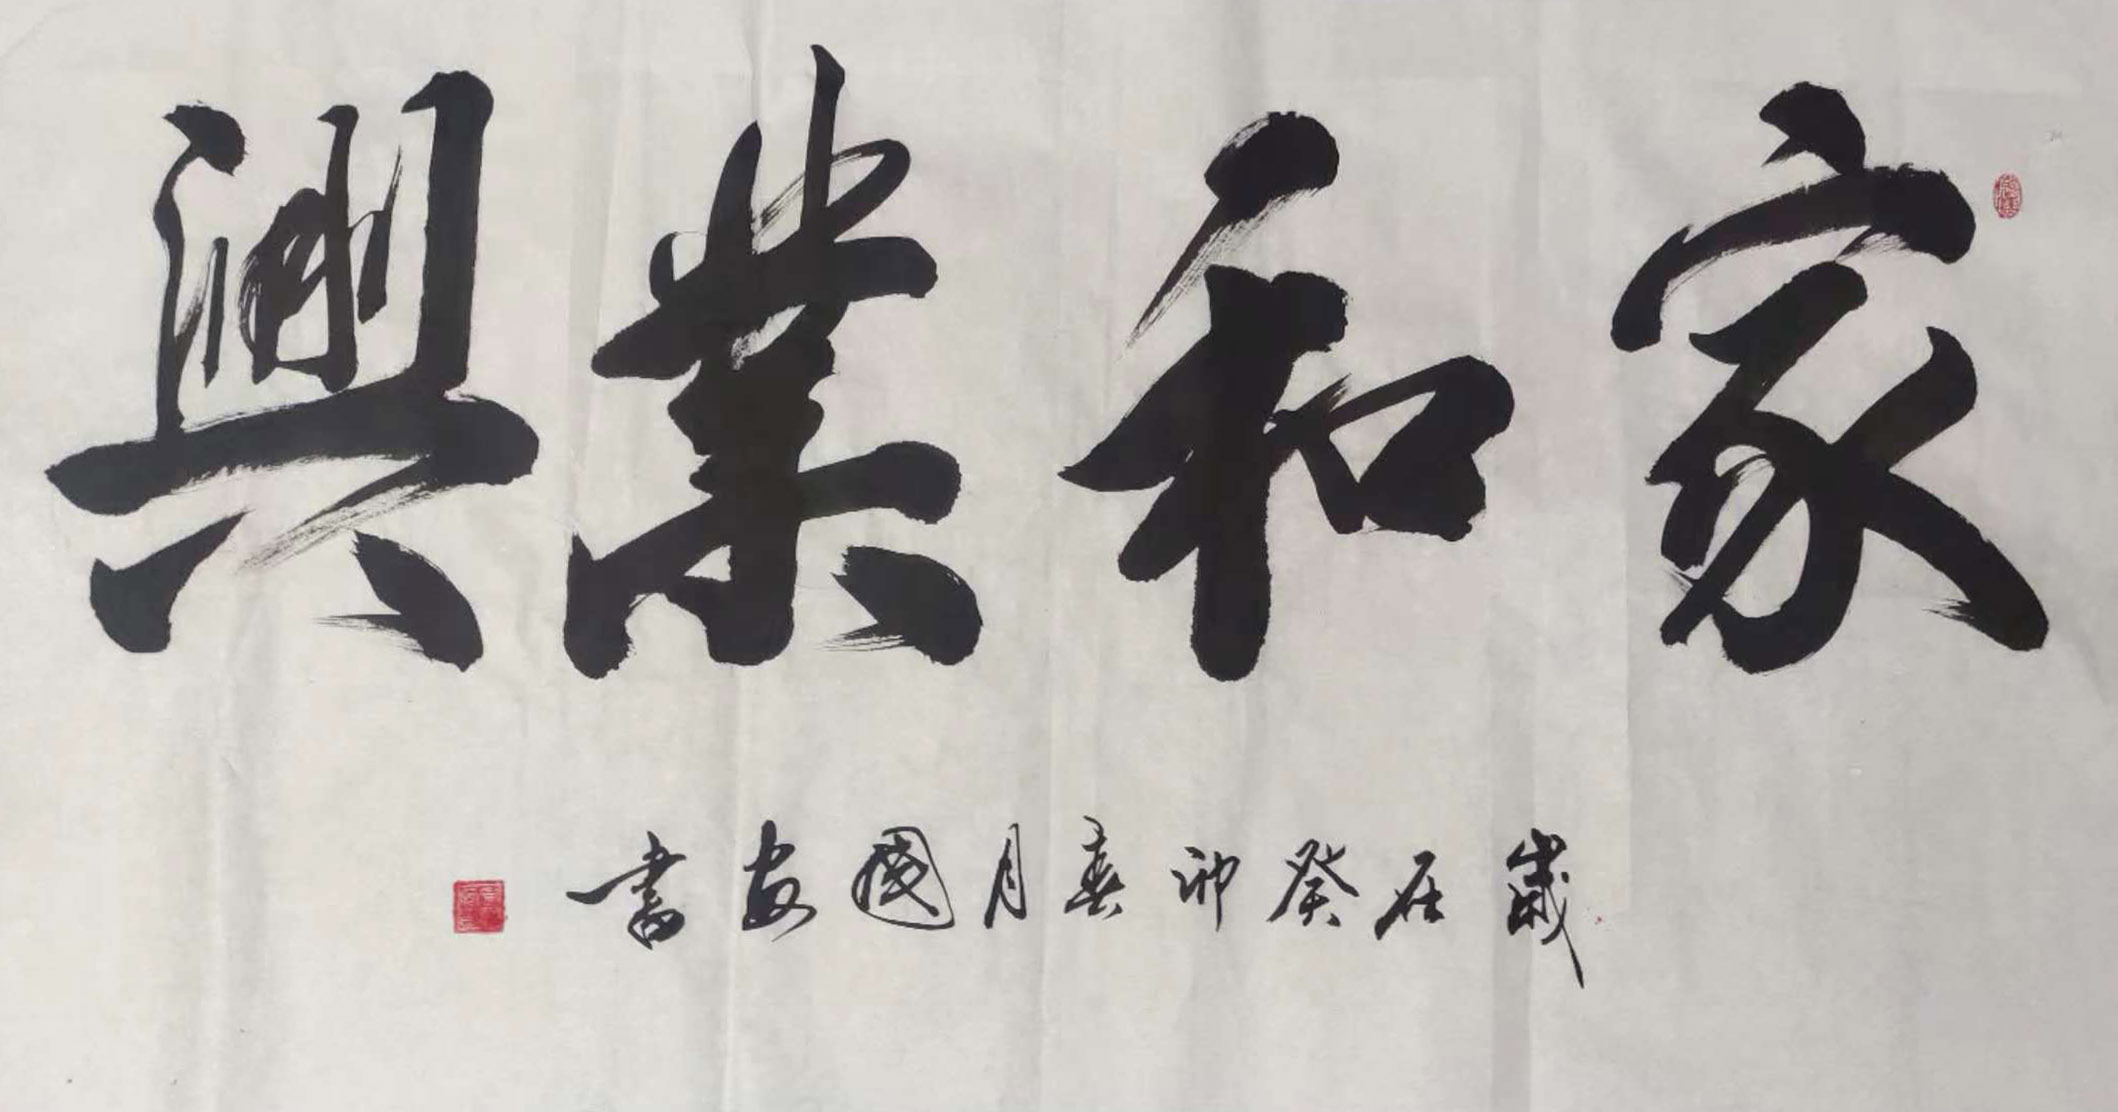 家和業興
歲在癸卯春月國安書